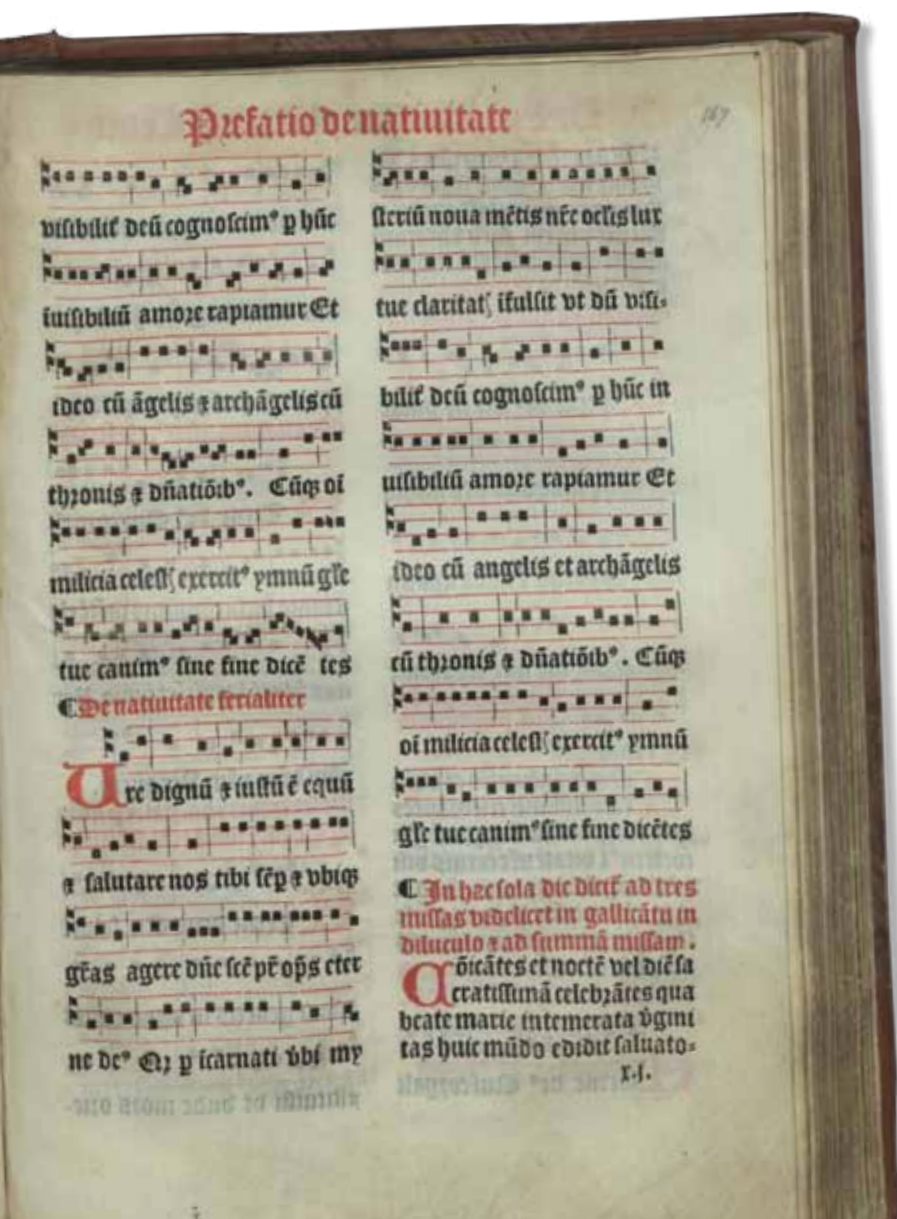 Prefatio de natiuitate
167
visibilit̛ deũ cognoscim⁹ ꝑ hũc
iuisibiliũ amore rapiamur Et
ideo cũ ãgelis ⁊ archãgelis cũ
thronis ⁊ dñatiõib⁹. Cũqꝫ oĩ
milicia celest̛ exercit⁹ ymnũ gl̃e
tue canim⁹ sine fine dicẽ tes
¶De natiuitate ferialiter
Uere dignũ ⁊ iustũ ẽ equũ
⁊ salutare nos tibi sẽp ⁊ vbiqꝫ
gr̃as agere dñe sc̃e pr̃ op̃s eter
ne de⁹ Qꝫ ꝑ icarnati v̾bi my
steriũ noua mẽtis nr̃e ocl̃is lux
tue claritat̛ ifulsit vt dũ visi⸗
bilit̛ deũ cognoscim⁹ ꝑ hũc in
uisibiliũ amore rapiamur Et
ideo cũ angelis et archãgelis
cũ thronis ⁊ dñatiõib⁹. Cũqꝫ
oĩ milicia celest̛ exercit⁹ ymnũ
gl̃e tue canim⁹ sine fine dicẽtes
¶ In hac sola die dicit̛ ad tres
missas videlicet in gallicãtu in
diluculo ⁊ ad summã missam.
Cõicãtes et noctẽ vel diẽ sa
cratissimã celebrãtes qua
beate marie intemerata v̾gini
tas huic mũdo edidit saluato⸗
x.j.